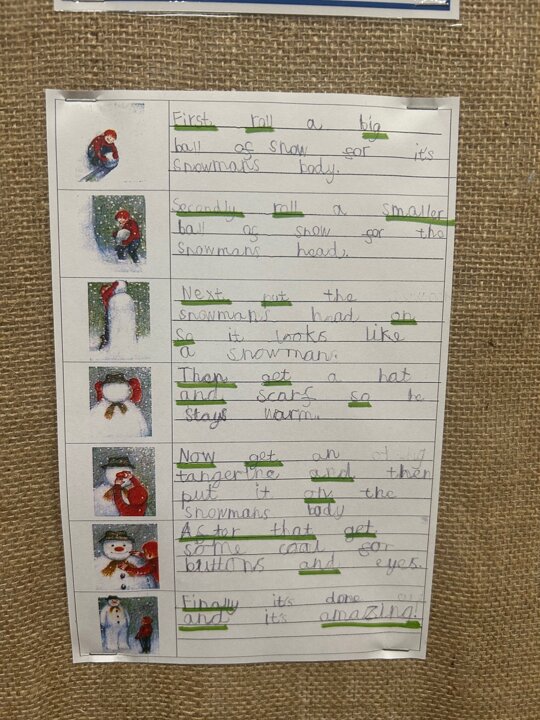 First roll a big
ball of snow for it's
snowman's body.
Secondly roll a smaller
ball of snow for the
snowmans head.
Next put the
snowman's head on
So it looks like
a snowman.
Then get a hat
and scarf so he
stays warm.
Now get an
tangerine and then
put it on the
snowmans body
After that get
some coal for
buttons and eyes.
Finally it's done
and it's amazing!